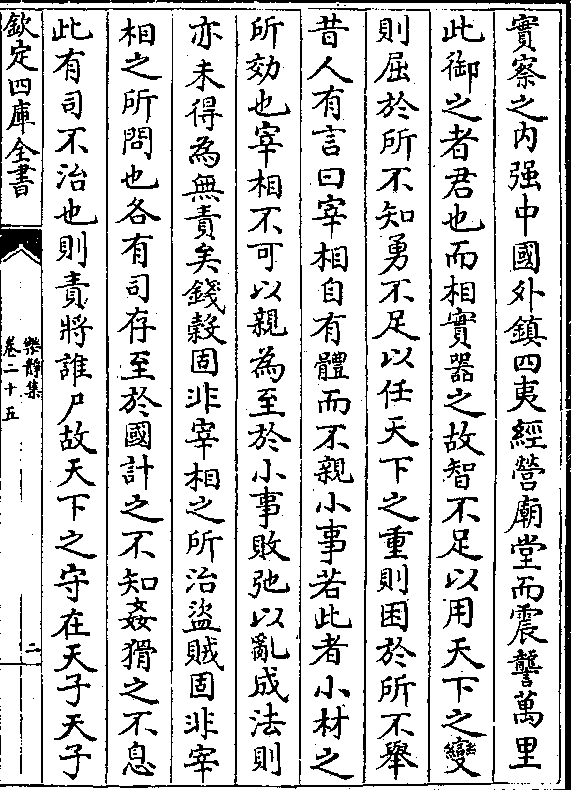 實察之内强中國外鎮四夷經營廟堂而震讋萬里
此御之者君也而相實器之故智不足以用天下之變
則屈於所不知勇不足以任天下之重則困於所不舉
昔人有言曰宰相自有體而不親小事若此者小材之
所効也宰相不可以親為至於小事敗弛以亂成法則
亦未得為無責矣錢榖固非宰相之所治盜賊固非宰
相之所問也各有司存至於國計之不知姦猾之不息
此有司不治也則責將誰尸故天下之守在天子天子
欽定四庫全書
樂靜集
卷二十五
二